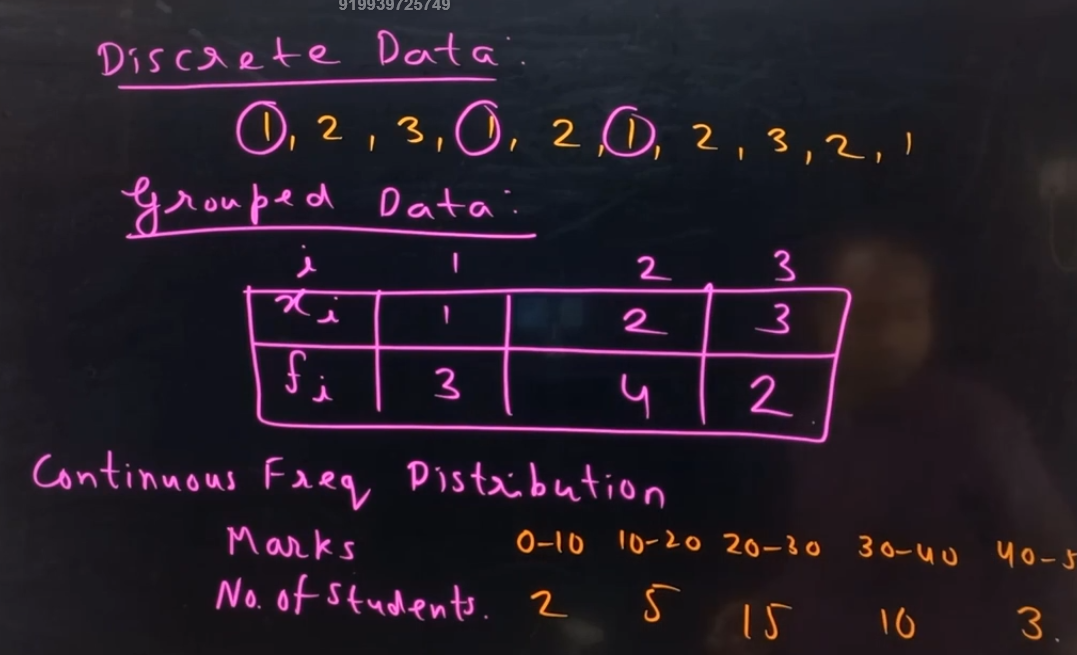 919939725749
Discrete Data:
1, 2, 3, 1, 2, 1, 2, 3, 2, 1
Grouped Data:
i 1 2 3
xi 1 2 3
fi 3 4 2
Continuous Freq Distribution
Marks 0-10 10-20 20-30 30-40 40-5
No. of students. 2 5 15 10 3.